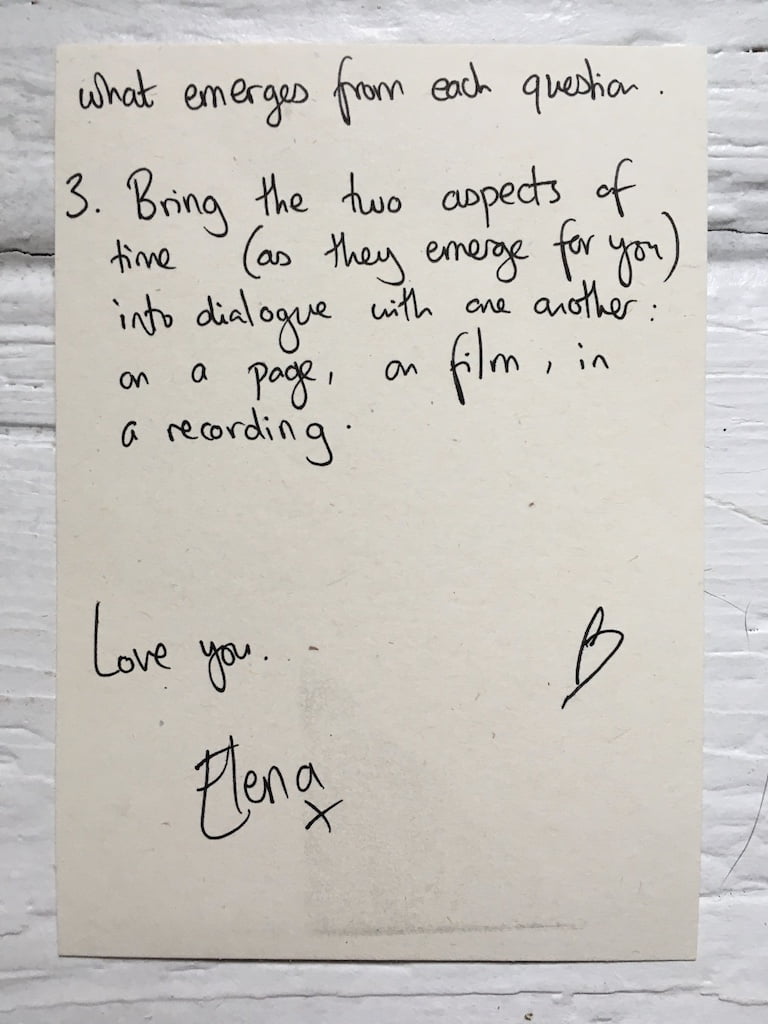 what emerges from each question.
3. Bring the two aspects of
time (as they emerge for you)
into dialogue with one another:
on a page, on film, in
a recording.
Love you.
B
Elena
x